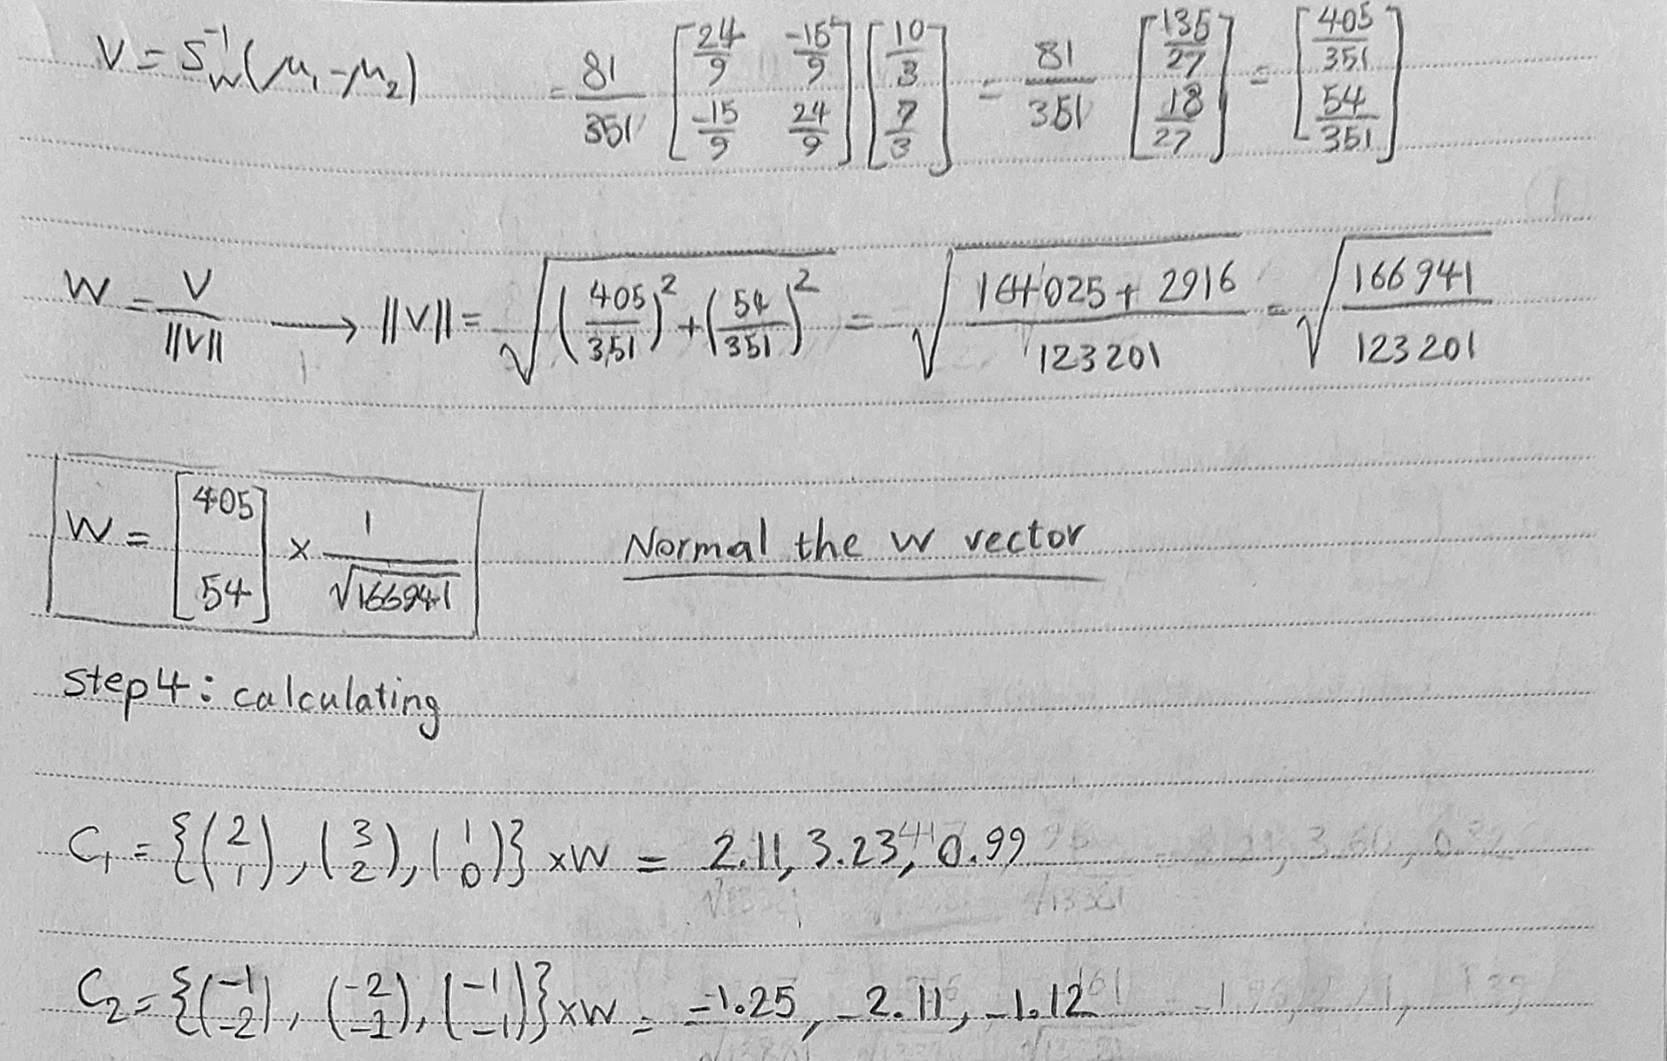 V = S_W^-1 (μ1 - μ2) = 81/351 [24/9 -15/9; -15/9 24/9] [10/3; 7/3] = 81/351 [135/27; 18/27] = [405/351; 54/351]
W = V/||V|| → ||V|| = √((405/351)^2 + (54/351)^2) = √((164025 + 2916)/123201) = √(166941/123201)
W = [405; 54] × 1/√166941 Normal the w vector
step4: calculating
C1 = {(2 1), (3 2), (1 0)} × W = 2.11, 3.23, 0.99
C2 = {(-1 -2), (-2 -1), (-1 -1)} × W = -1.25, -2.11, -1.12